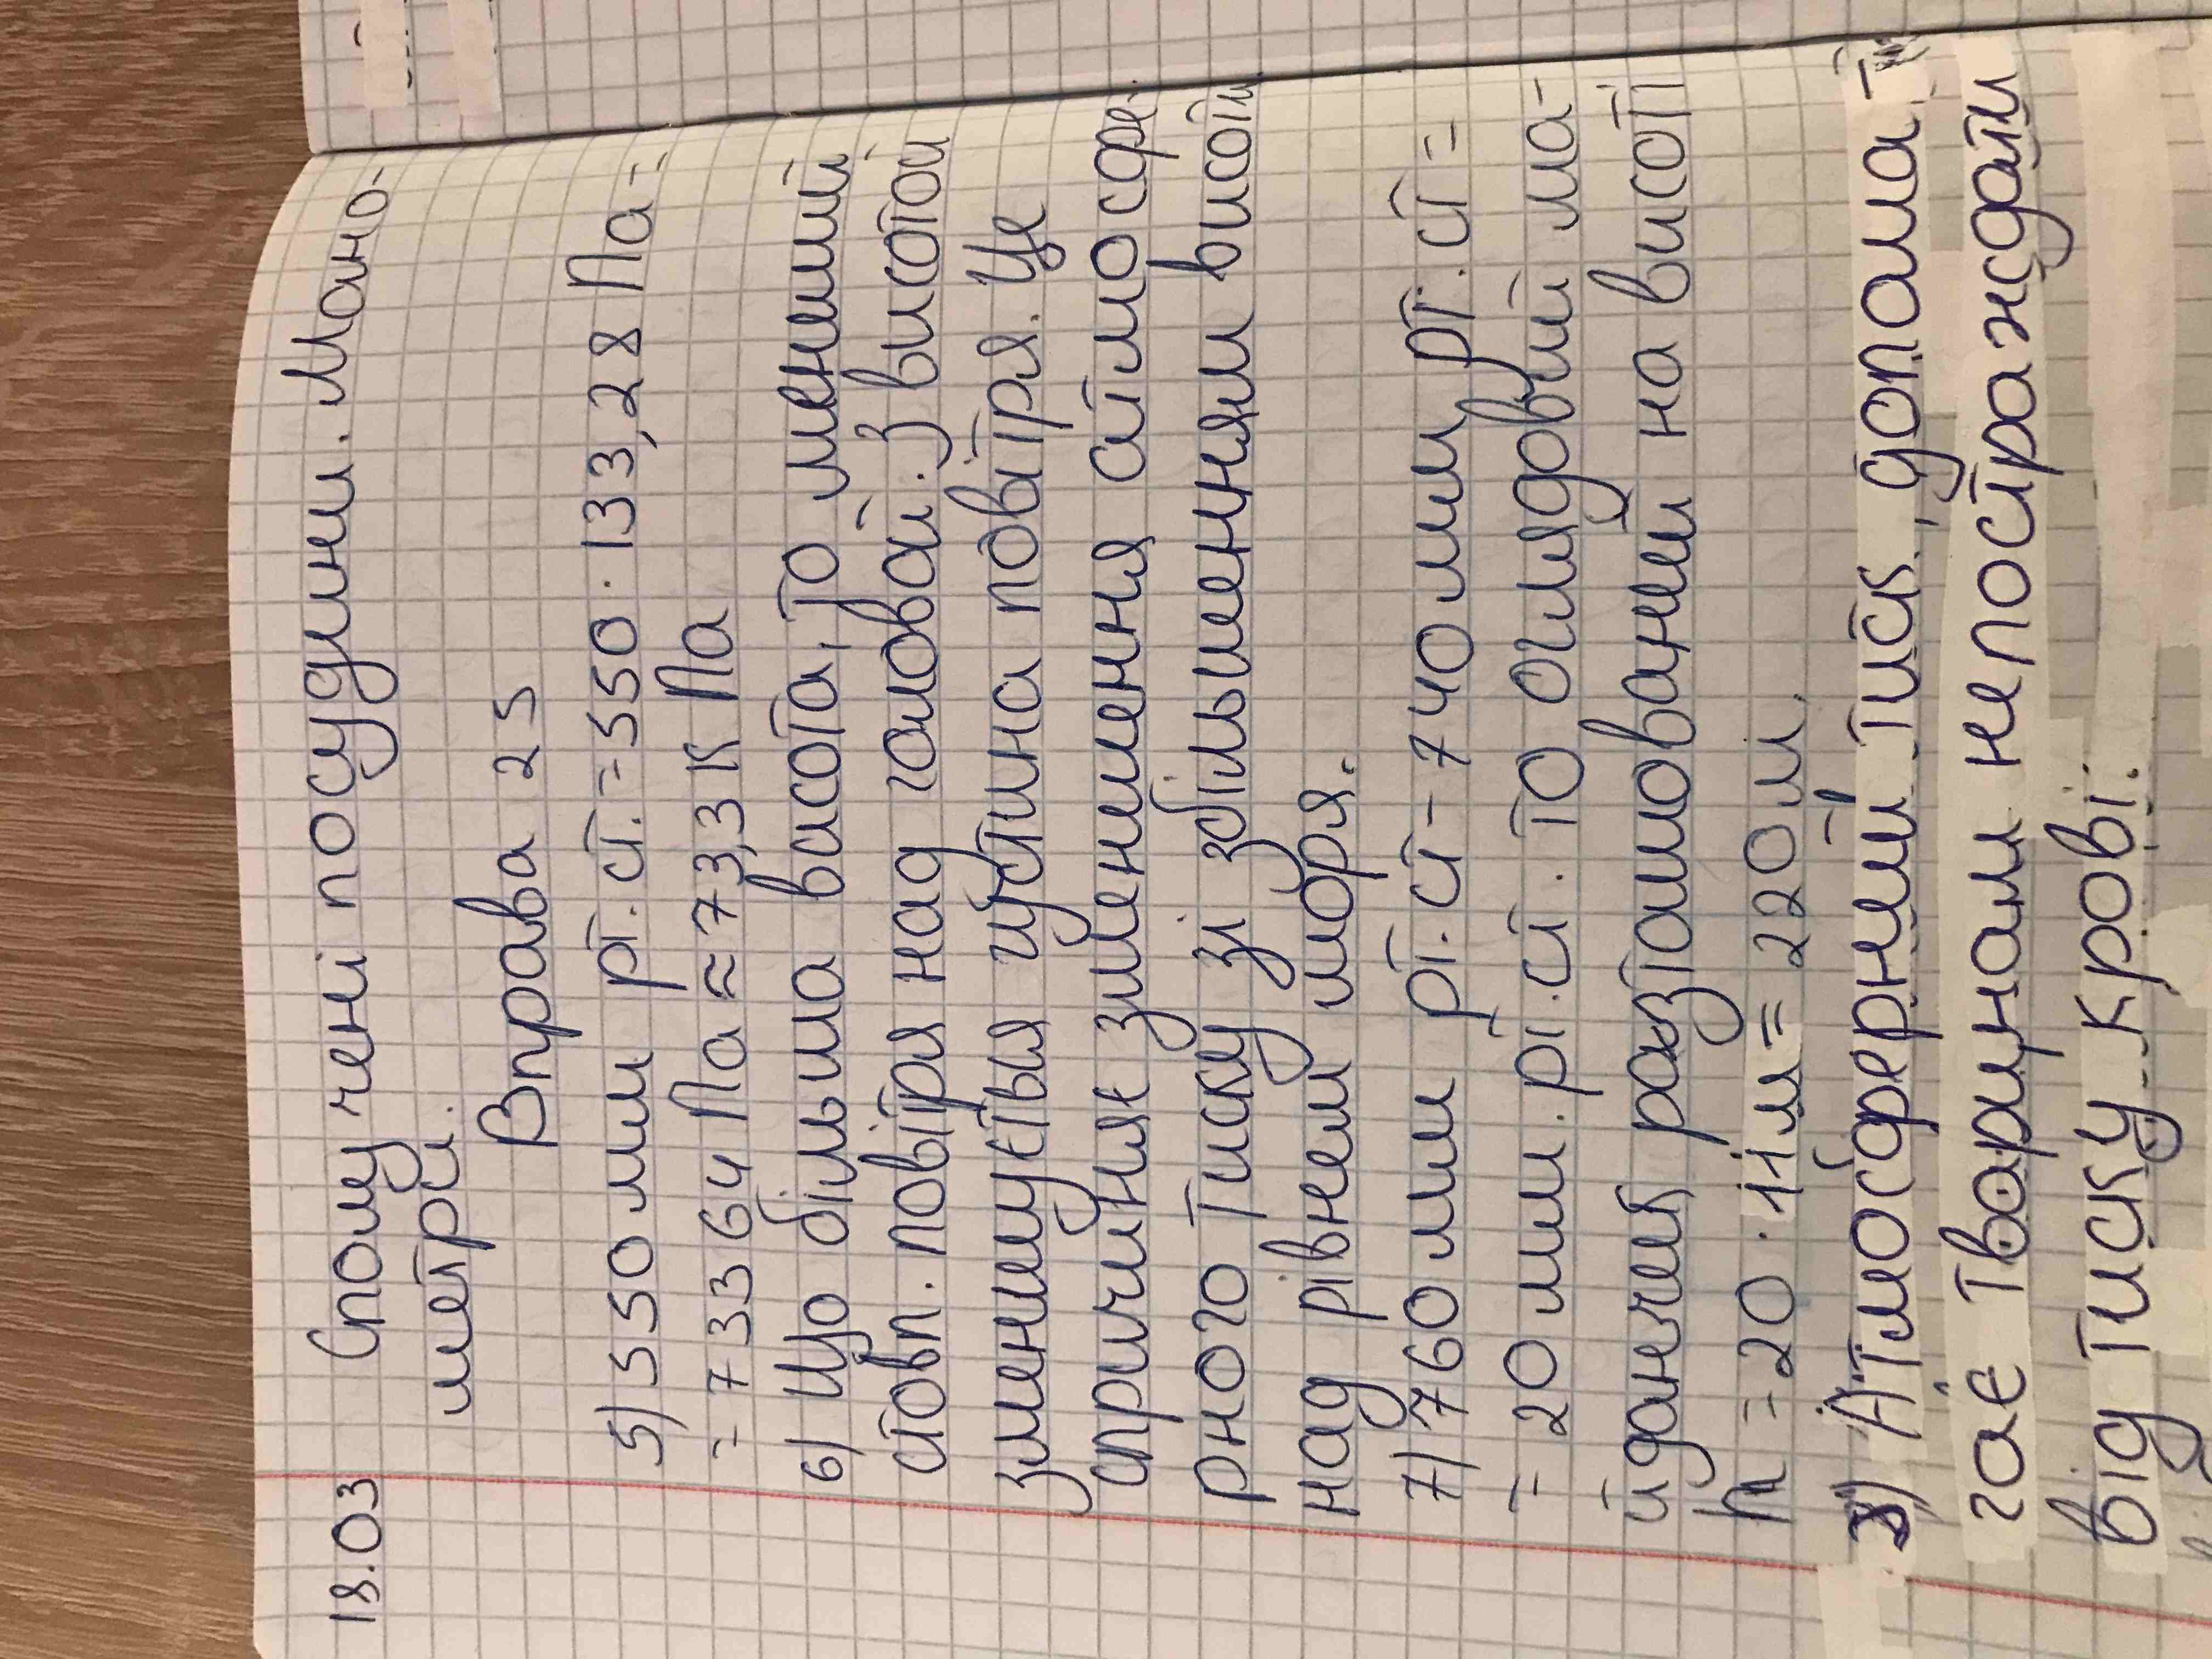 18.03 Сполучені посудини. Мано-
метри.
Вправа 25
5) 550 мм рт.ст. = 550 · 133,28 Па =
= 73364 Па ≈ 73,3 К Па
6) Що більша васота, то менший
стовп. повітря над головой. З висотои
зменшуєтья густина повітря. Це
спричиняє зменшення атмосфе-
рного тиску зі збільшенням висоти
над рівнем моря.
7) 760 мм рт.ст - 740 мм рт.ст =
= 20 мм.рт.ст. то оглядовий ма-
йданчея разташований на висоті
h = 20 · 11м = 220м.
3) Атмосферний тиск, допома
гає тваринам не постраждати
від тиску крові.